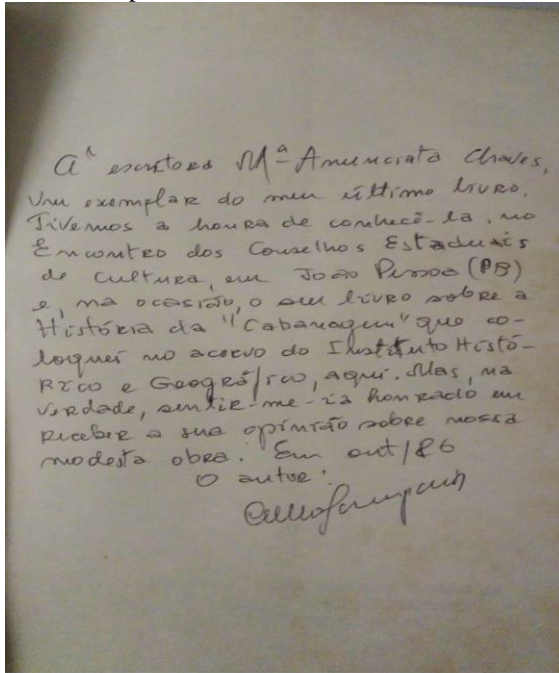 À escritora Mª Anunciata Chaves,
Um exemplar do meu último livro.
Tivemos a honra de conhecê-la, no
Encontro dos Conselhos Estaduais
de Cultura, em João Pessoa (PB)
e, na ocasião, o seu livro sobre a
História da "Cabanagem" que co-
loquei no acervo do Instituto Histó-
Rico e Geográfico, aqui. Mas, na
verdade, sentir-me-ia honrado em
receber a sua opinião sobre nossa
modesta obra. Em out/86
O autor: